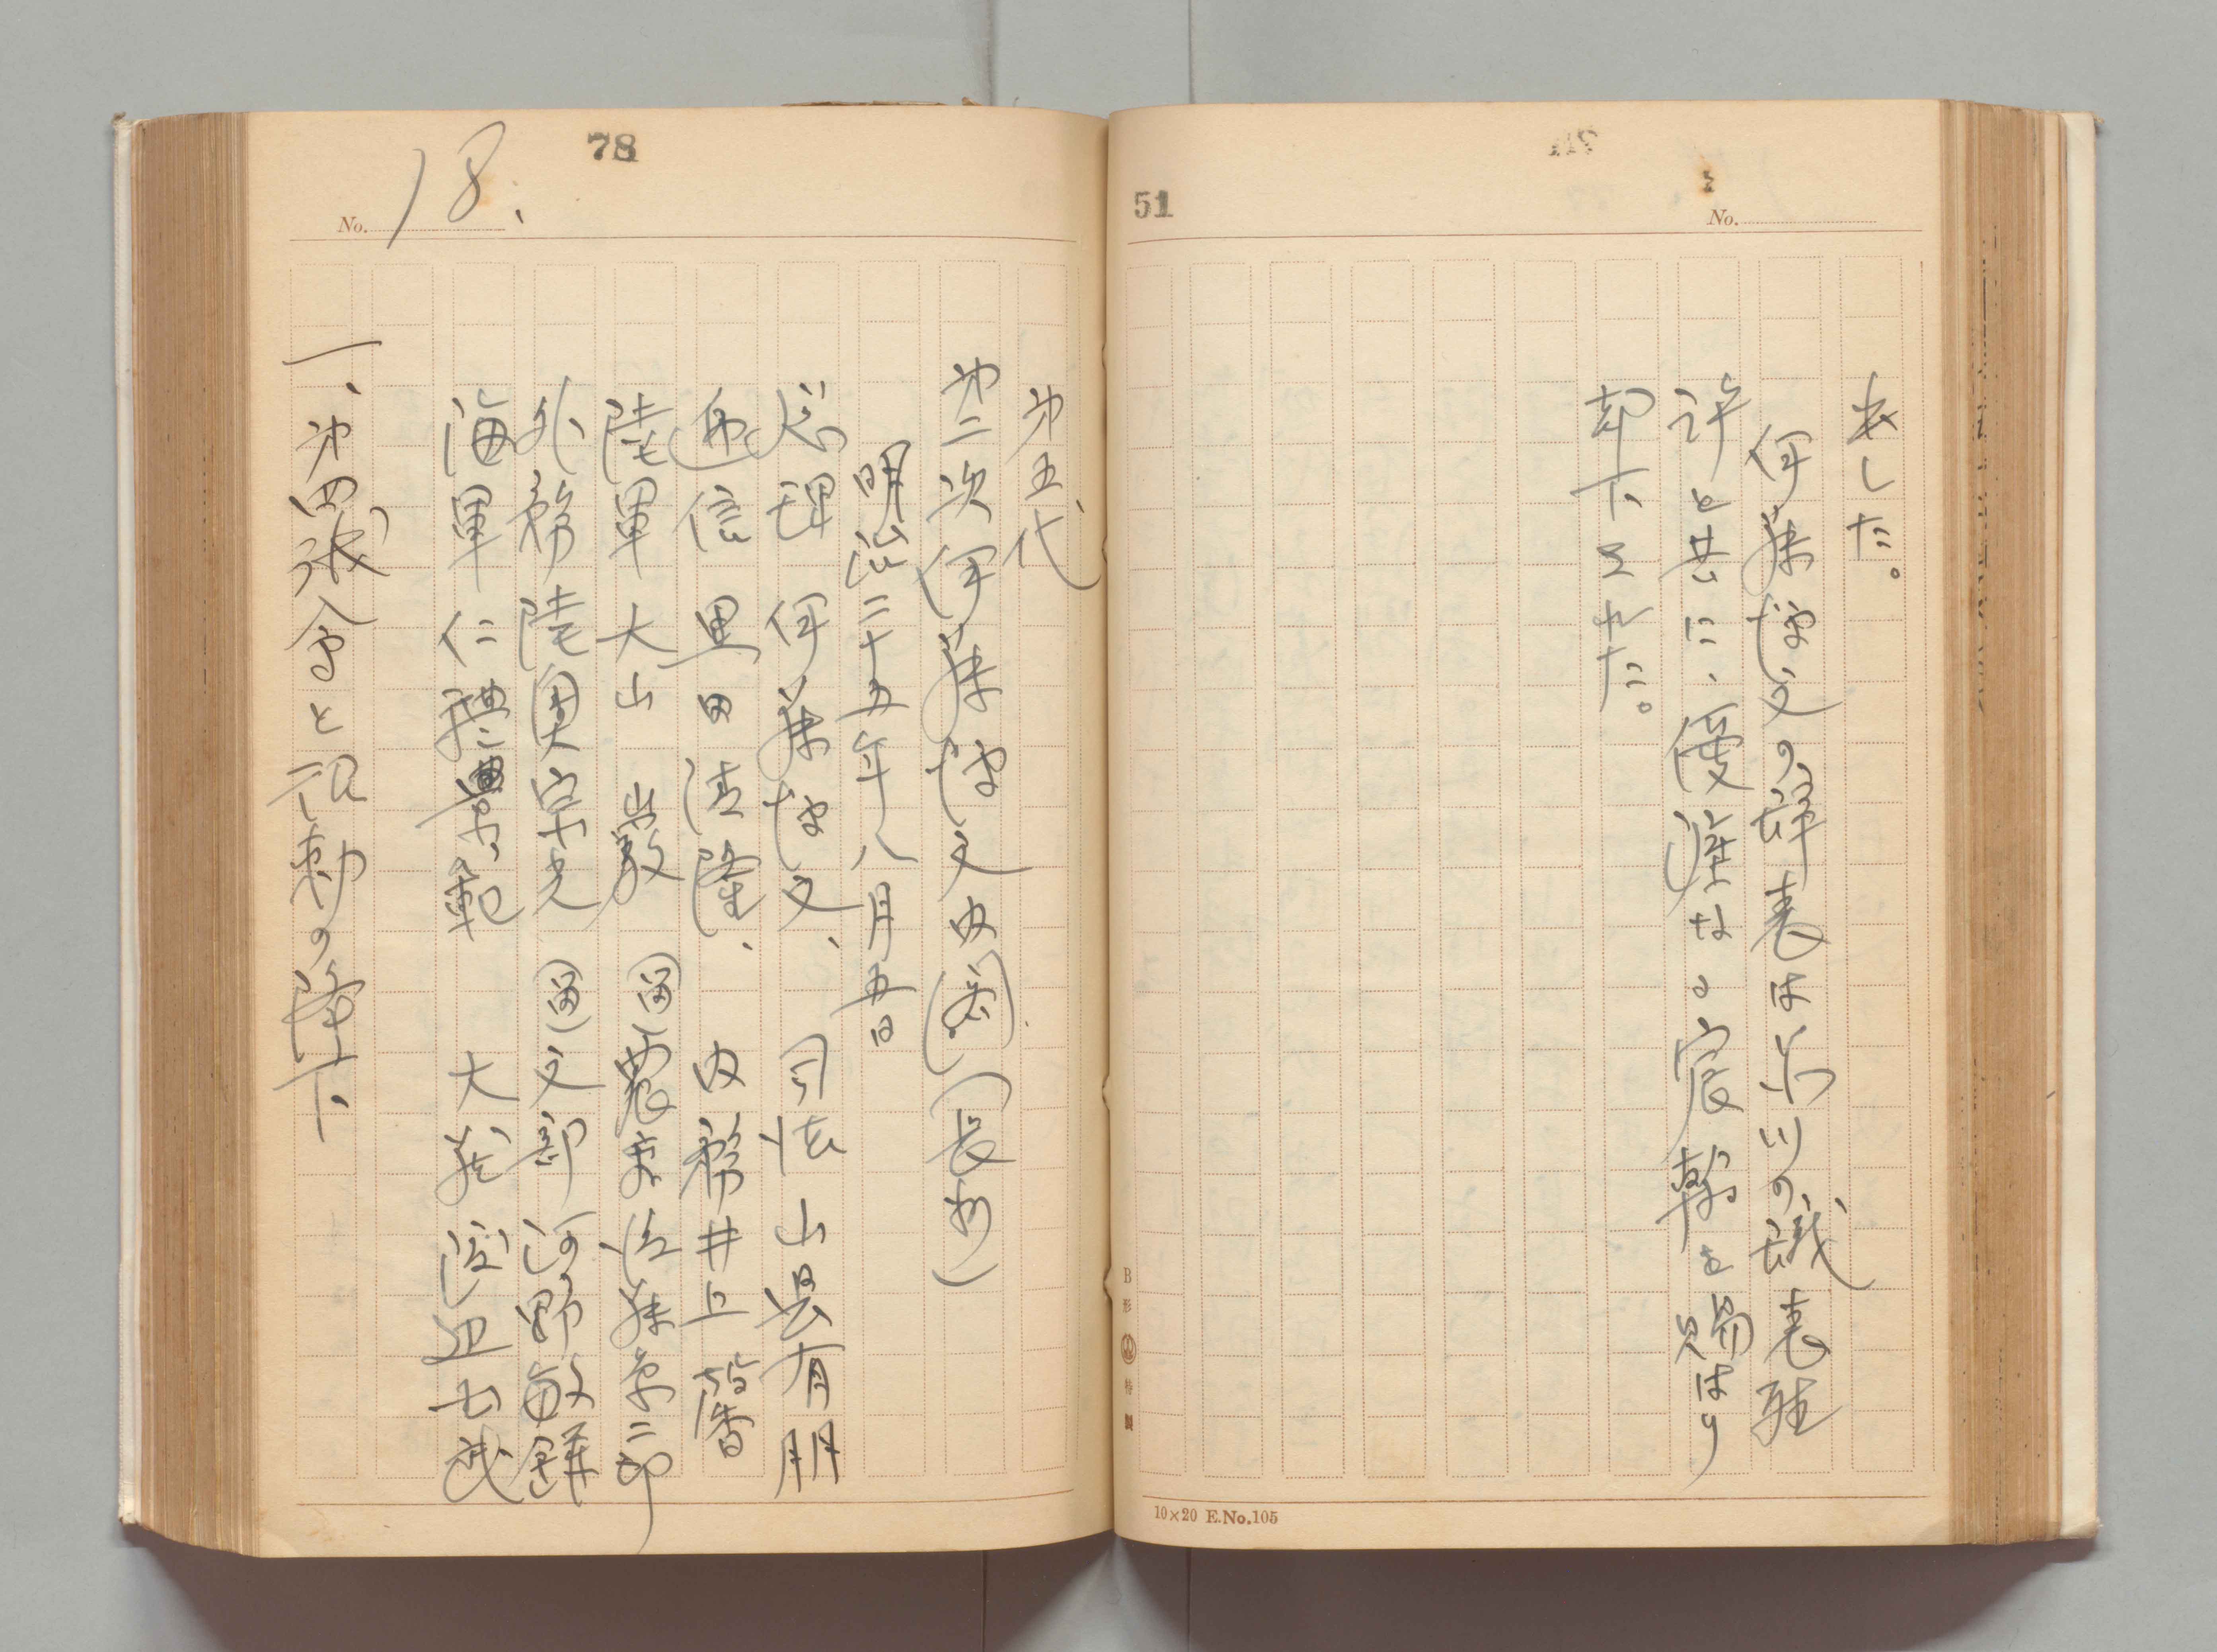 51
No.
した。
伊藤博文の辞表は品川の表聴
許と共に、優渥なる宸翰を賜はり
却下された。
B形 特製
10×20 E.No.105
78
No. 18.
第五代
第二次伊藤博文内閣(長州)
明治二十五年八月五日
总理 伊藤博文、 司法 山県有朋
逓信 黒田清隆、 内務 井上馨
陸軍 大山 巌 留 農商 佐藤
外務 陸奥宗光 留 文部 河野敏鎌
海軍 仁禮景範 大蔵 渡辺
一、第四議会と詔勅の降下